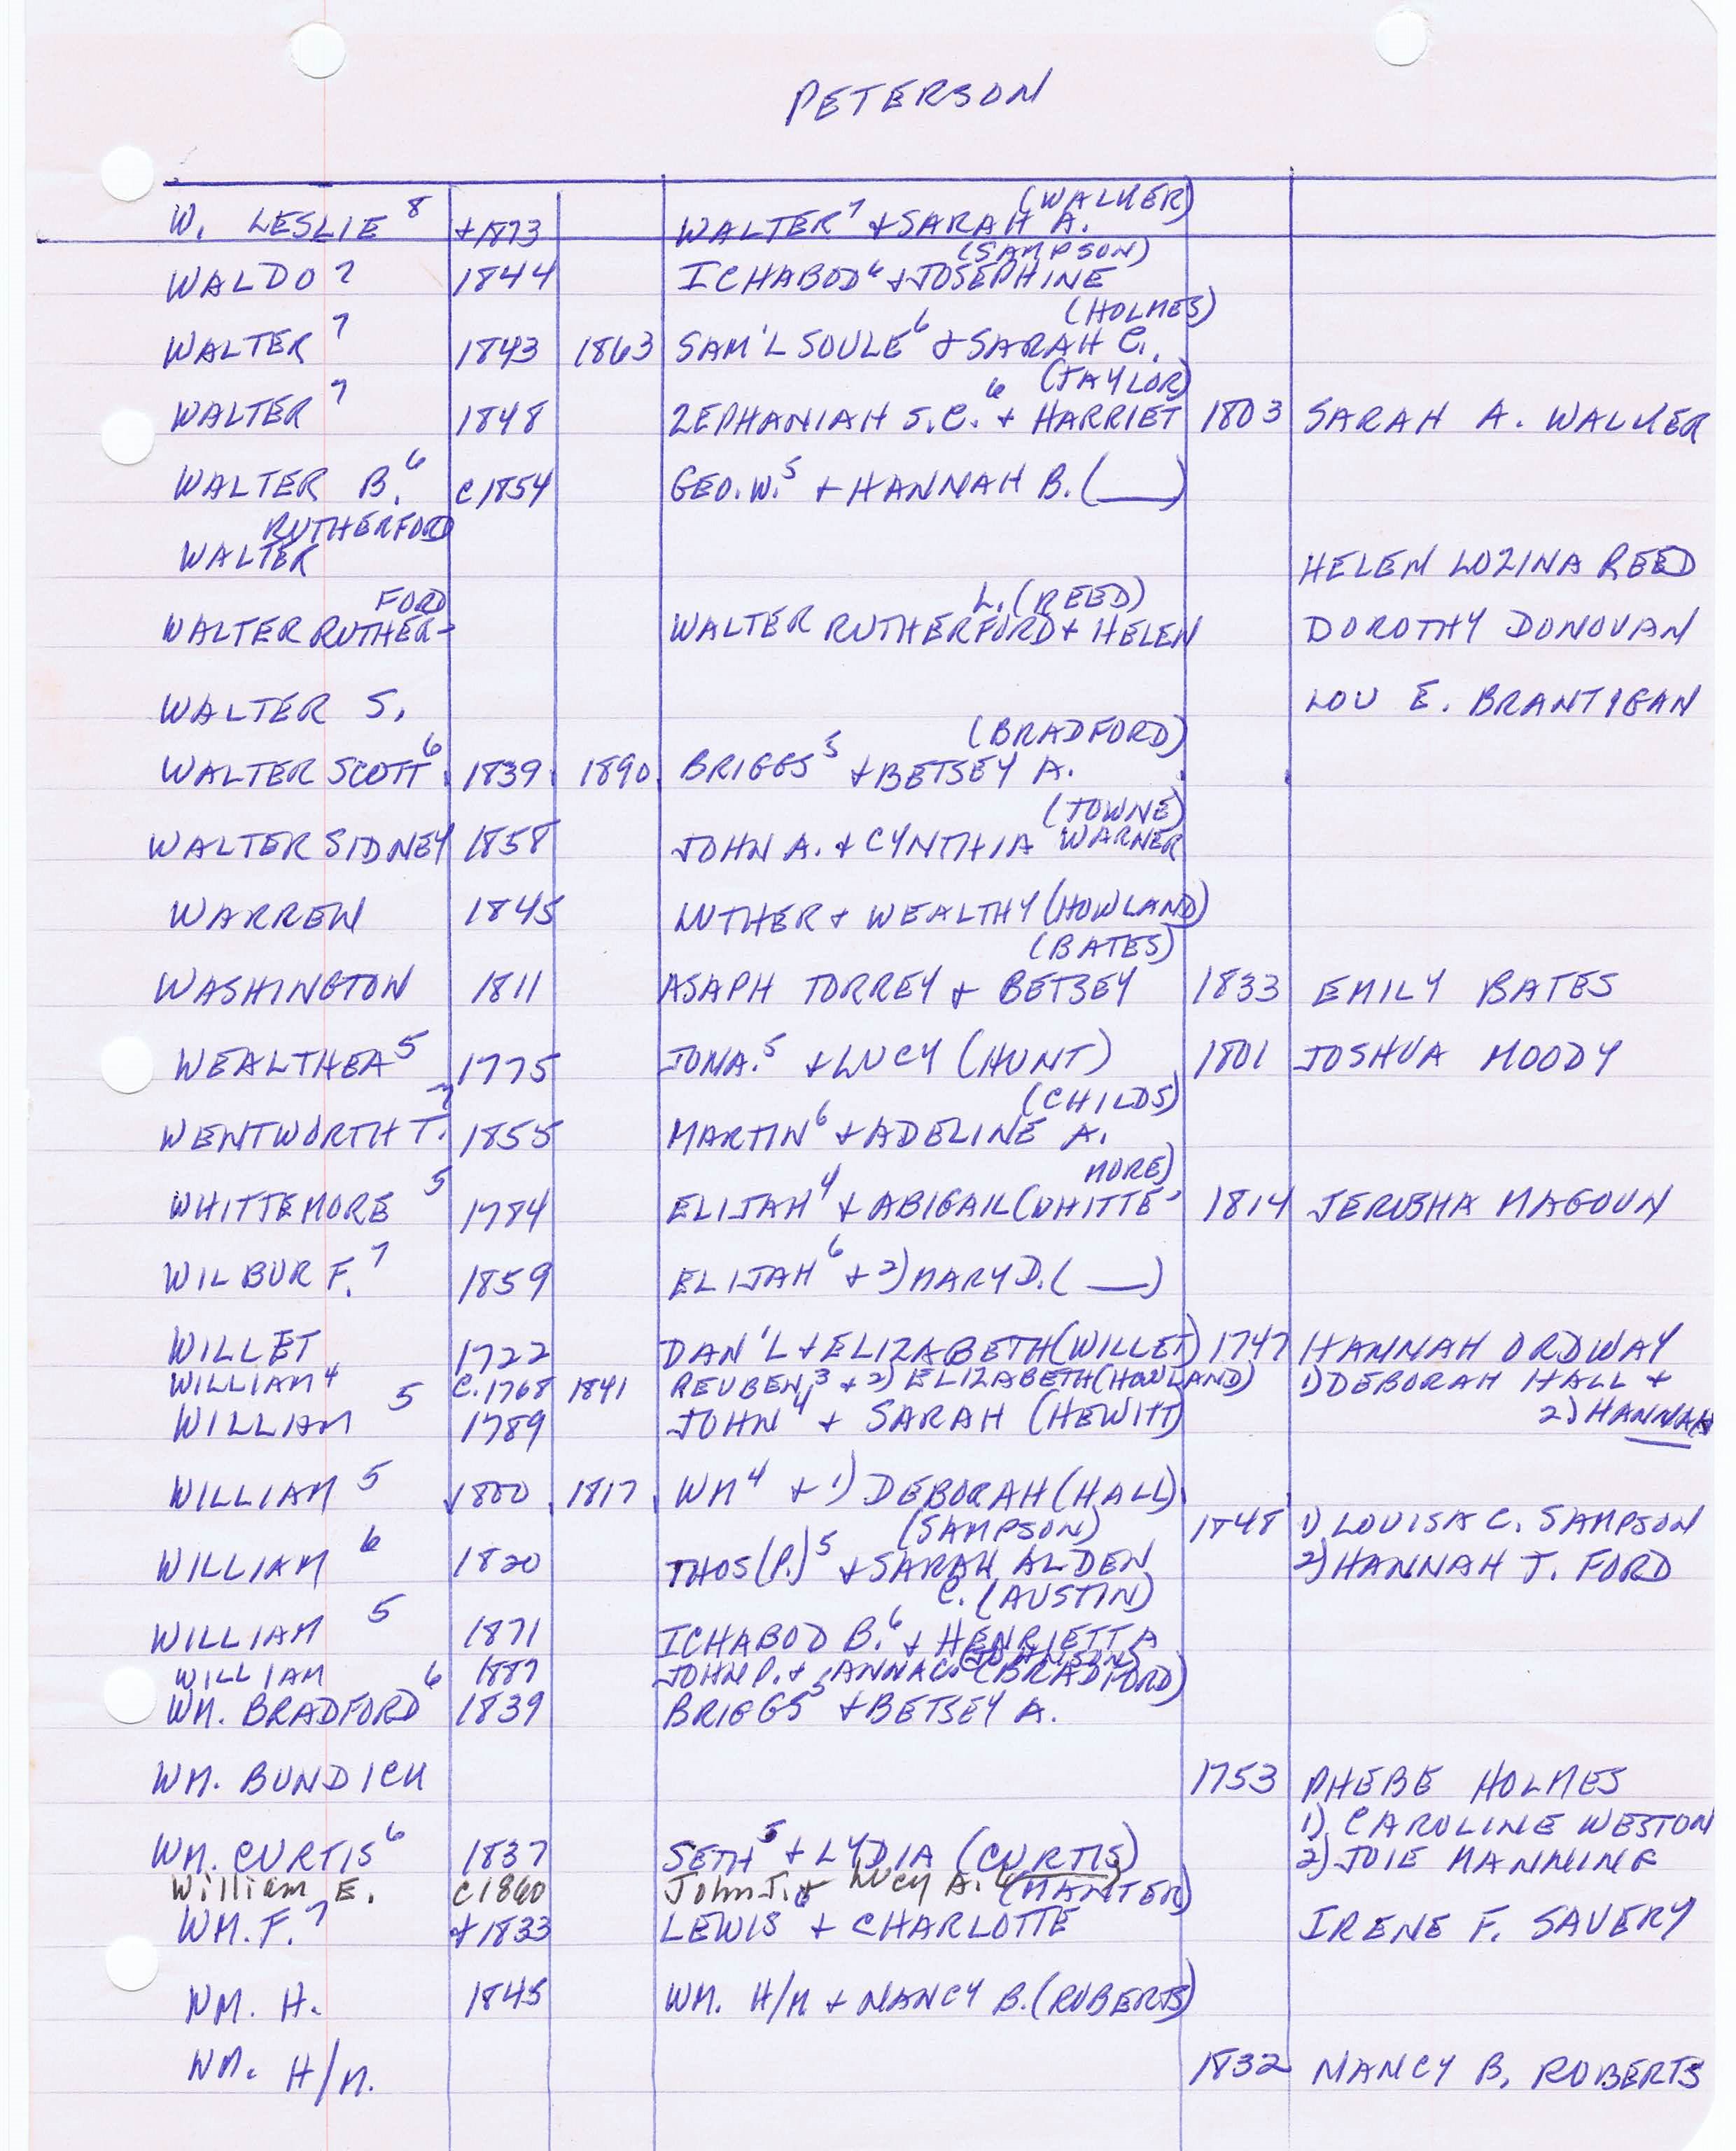 PETERSON
(WALKER)
W. LESLIE 8 +1873 WALTER 7 + SARAH A.
(SAMPSON)
WALDO 7 1844 ICHABOD 6 + JOSEPHINE
(HOLMES)
WALTER 7 1843 1863 SAM'L SOULE 6 + SARAH C.
(TAYLOR)
WALTER 7 1848 ZEPHANIAH S.C. 6 + HARRIET 1803 SARAH A. WALKER
WALTER B. 6 C1854 GEO. W. 5 + HANNAH B. (___)
RUTHERFORD
WALTER HELEN LOZINA REED
FORD L. (REED)
WALTER RUTHER- WALTER RUTHERFORD + HELEN DOROTHY DONOVAN
WALTER S. LOU E. BRANTIGAN
(BRADFORD)
WALTER SCOTT 6 1839 1890 BRIGGS 5 + BETSEY A.
(TOWNE)
WALTER SIDNEY 1858 JOHN A. + CYNTHIA WARNER
WARREN 1845 LUTHER + WEALTHY (HOWLAND)
(BATES)
WASHINGTON 1811 ASAPH TORREY + BETSEY 1833 EMILY BATES
WEALTHEA 5 1775 JONA. 5 + LUCY (HUNT) 1801 JOSHUA MOODY
(CHILDS)
WENTWORTH T. 7 1855 MARTIN 6 + ADELINE A.
MORE)
WHITTEMORE 5 1784 ELIJAH 4 + ABIGAIL (WHITTE- 1814 JERUSHA MAGOUN
WILBUR F. 7 1859 ELIJAH 6 + 2) MARY D. (___)
WILLET 1722 DAN'L + ELIZABETH (WILLET) 1747 HANNAH ORDWAY
WILLIAM 4 C.1768 1841 REUBEN 3 + 2) ELIZABETH (HOWLAND) 1) DEBORAH HALL +
2) HANNAH
WILLIAM 5 1789 JOHN 4 + SARAH (HEWITT)
WILLIAM 5 1800 1817 WM 4 + 1) DEBORAH (HALL)
(SAMPSON) 1848 1) LOUISA C. SAMPSON
WILLIAM 6 1820 THOS (P.) 5 + SARAH ALDEN 2) HANNAH T. FORD
C. (AUSTIN)
WILLIAM 5 1871 ICHABOD B. 6 + HENRIETTA
(JOHNSON)
WILLIAM 1887 JOHN P. + ANNA C.
(BRADFORD)
WM. BRADFORD 6 1839 BRIGGS 5 + BETSEY A.
WM. BUNDICK 1753 PHEBE HOLMES
1) CAROLINE WESTON
WM. CURTIS 6 1837 SETH 5 + LYDIA (CURTIS) 2) JOIE MANNING
William E. C1860 John J. + Lucy A. (___)
(MANTER)
WM. F. 7 +1833 LEWIS 6 + CHARLOTTE IRENE F. SAVERY
WM. H. 1845 WM. H/M + NANCY B. (ROBERTS)
WM. H/M. 1832 NANCY B. ROBERTS